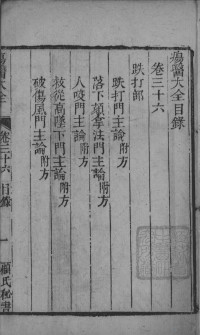 瘍醫大全目錄
卷三十六
跌打部
跌打門主論附方
落下頦拿法門主論附方
人咬門主論附方
救從高墜下門主論附方
破傷風門主論附方
卷三十六 目錄
一
顧氏秘書